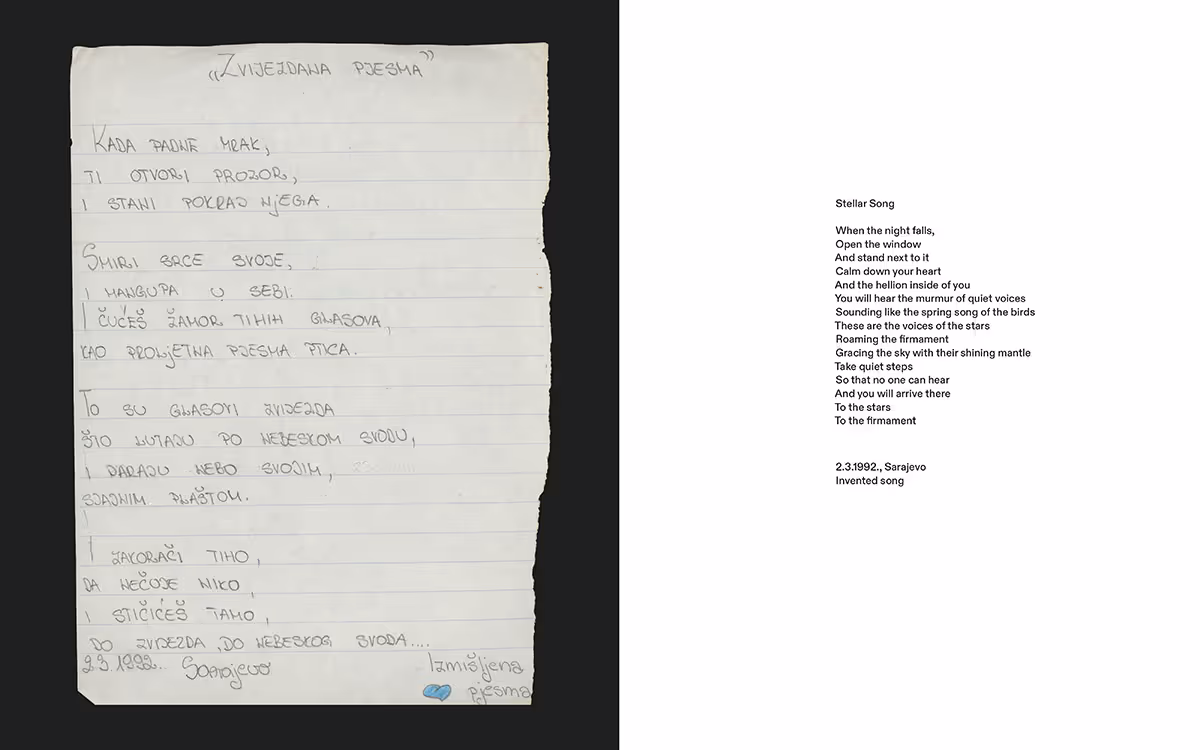 „Zvijezdana pjesma”
Kada padne mrak,
ti otvori prozor,
i stani pokraj njega.
Smiri srce svoje,
i mangupa u sebi.
I čučeš žamor tihih glasova,
kao proljetna pjesma ptica.
To su glasovi zvijezda
što lutaju po nebeskom svodu,
i daraju nebo svojim,
sjajnim plaštom.
I zakorači tiho,
da nečuje niko,
i stičićeš tamo,
do zvijezda, do nebeskog svoda....
2.3.1992.. Sarajevo
Izmišljena
pjesma
Stellar Song
When the night falls,
Open the window
And stand next to it
Calm down your heart
And the hellion inside of you
You will hear the murmur of quiet voices
Sounding like the spring song of the birds
These are the voices of the stars
Roaming the firmament
Gracing the sky with their shining mantle
Take quiet steps
So that no one can hear
And you will arrive there
To the stars
To the firmament
2.3.1992., Sarajevo
Invented song